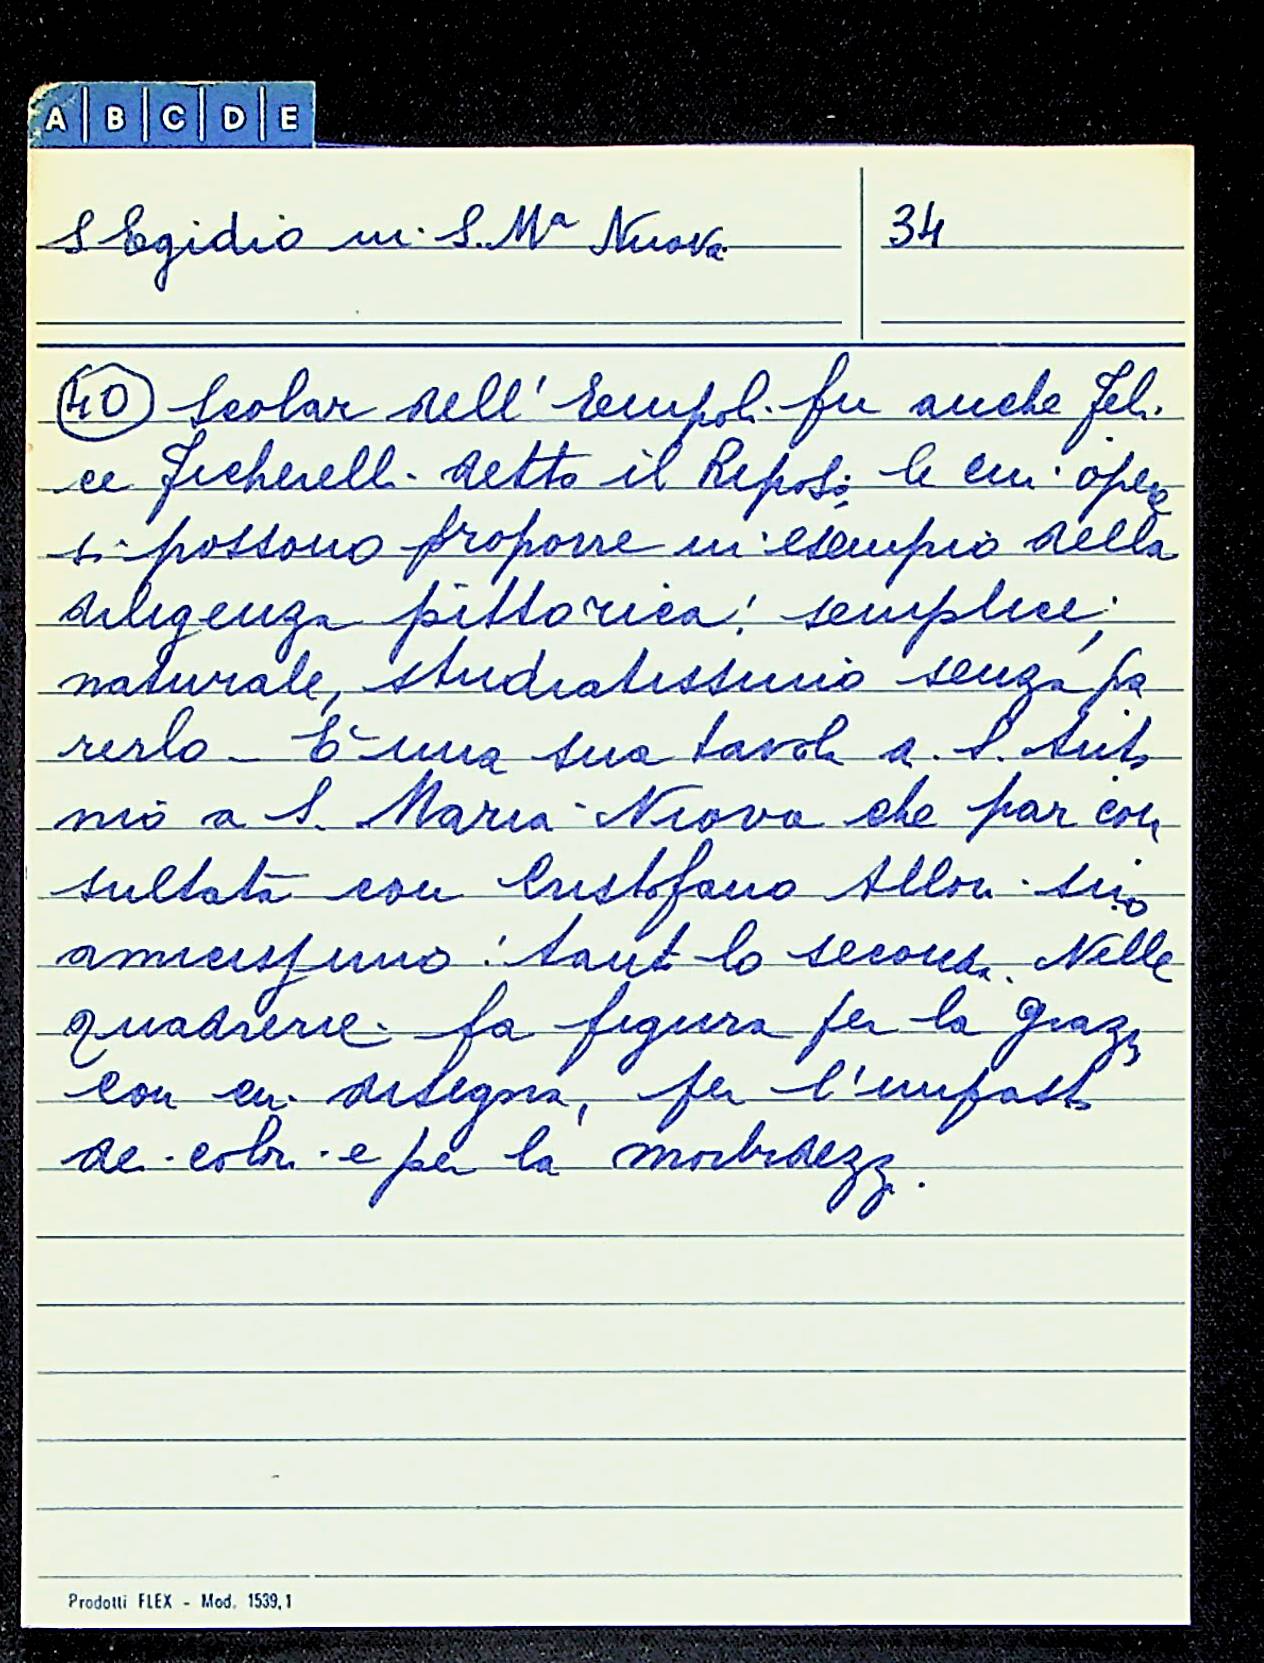 A B C D E
S Egidio in S. Mª Nuova 34
40 Scolar dell'Empoli fu anche Feli
ce Ficherelli detto il Riposo, le cui opere
si possono proporre in esempio della
diligenza pittorica: semplice,
naturale, studiatissimo senza pa
rerlo - È una sua tavola a S. Anto
nio a S. Maria Nuova che par con
sultata con Cristofano Allori suo
amicissimo: tanto lo seconda. Nelle
quadrerie fa figura per la grazia
con cui disegna, per l'impasto
de' colori e per la morbidezza.
Prodotti FLEX - Mod. 1539,1